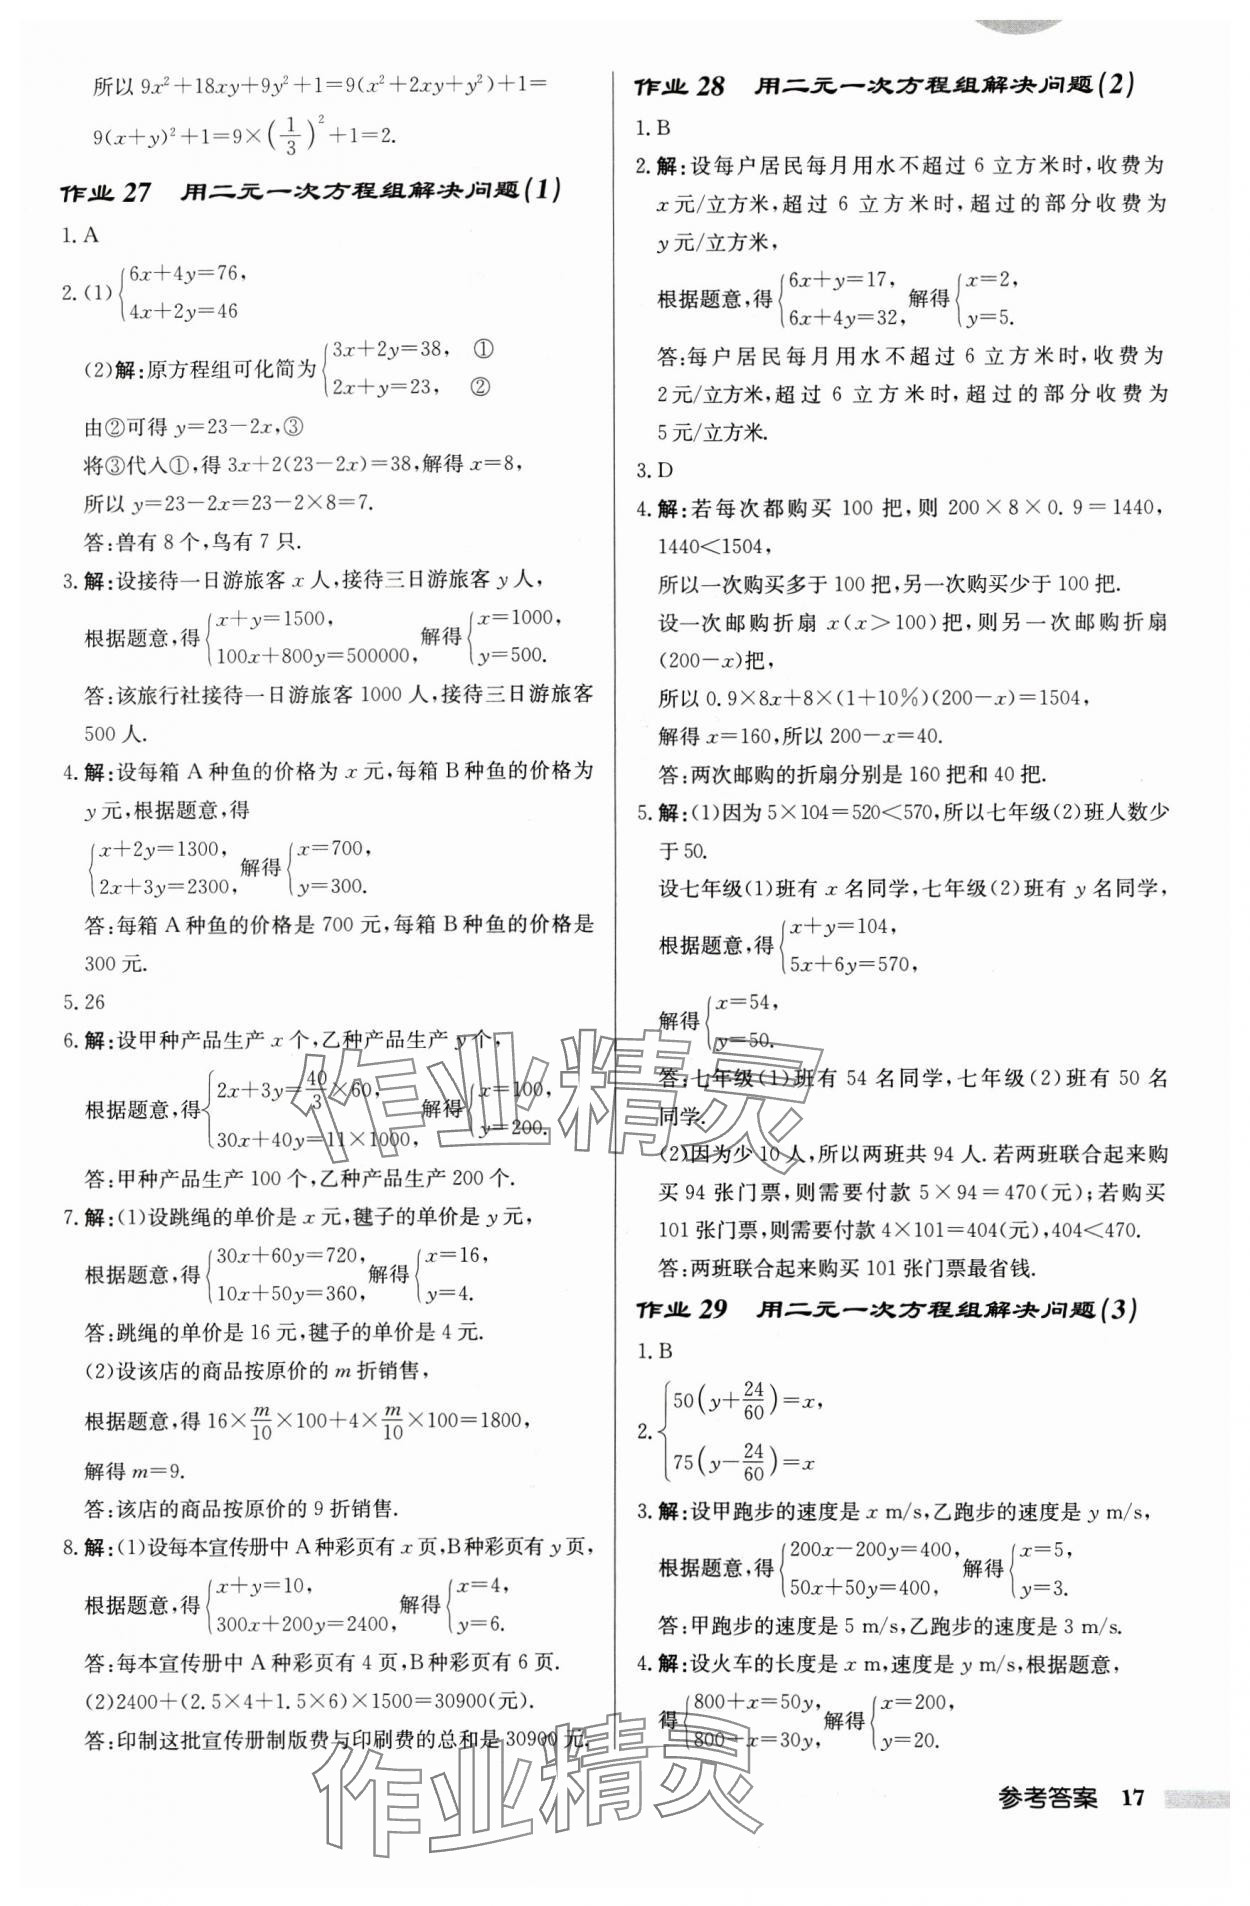 所以 9x²+18xy+9y²+1=9(x²+2xy+y²)+1=
9(x+y)²+1=9×(1/3)²+1=2.
作业 27 用二元一次方程组解决问题(1)
1. A
2. (1) { 6x+4y=76,
4x+2y=46
(2)解:原方程组可化简为 { 3x+2y=38, ①
2x+y=23, ②
由②可得 y=23-2x,③
将③代入①,得 3x+2(23-2x)=38,解得 x=8,
所以 y=23-2x=23-2×8=7.
答:兽有 8 个,鸟有 7 只.
3. 解:设接待一日游旅客 x 人,接待三日游旅客 y 人,
根据题意,得 { x+y=1500, 100x+800y=500000, 解得 { x=1000, y=500.
答:该旅行社接待一日游旅客 1000 人,接待三日游旅客
500 人.
4. 解:设每箱 A 种鱼的价格为 x 元,每箱 B 种鱼的价格为
y 元,根据题意,得
{ x+2y=1300, 2x+3y=2300, 解得 { x=700, y=300.
答:每箱 A 种鱼的价格是 700 元,每箱 B 种鱼的价格是
300 元.
5. 26
6. 解:设甲种产品生产 x 个,乙种产品生产 y 个,
根据题意,得 { 2x+3y=40/3×60, 30x+40y=11×1000, 解得 { x=100, y=200.
答:甲种产品生产 100 个,乙种产品生产 200 个.
7. 解:(1)设跳绳的单价是 x 元,毽子的单价是 y 元,
根据题意,得 { 30x+60y=720, 10x+50y=360, 解得 { x=16, y=4.
答:跳绳的单价是 16 元,毽子的单价是 4 元.
(2)设该店的商品按原价的 m 折销售,
根据题意,得 16×m/10×100+4×m/10×100=1800,
解得 m=9.
答:该店的商品按原价的 9 折销售.
8. 解:(1)设每本宣传册中 A 种彩页有 x 页,B 种彩页有 y 页,
根据题意,得 { x+y=10, 300x+200y=2400, 解得 { x=4, y=6.
答:每本宣传册中 A 种彩页有 4 页,B 种彩页有 6 页.
(2)2400+(2.5×4+1.5×6)×1500=30900(元).
答:印制这批宣传册制版费与印刷费的总和是 30900 元.
作业 28 用二元一次方程组解决问题(2)
1. B
2. 解:设每户居民每月用水不超过 6 立方米时,收费为
x 元/立方米,超过 6 立方米时,超过的部分收费为
y 元/立方米,
根据题意,得 { 6x+y=17, 6x+4y=32, 解得 { x=2, y=5.
答:每户居民每月用水不超过 6 立方米时,收费为
2 元/立方米,超过 6 立方米时,超过的部分收费为
5 元/立方米.
3. D
4. 解:若每次都购买 100 把,则 200×8×0.9=1440,
1440<1504,
所以一次购买多于 100 把,另一次购买少于 100 把.
设一次邮购折扇 x(x>100)把,则另一次邮购折扇
(200-x)把,
所以 0.9×8x+8×(1+10%)(200-x)=1504,
解得 x=160,所以 200-x=40.
答:两次邮购的折扇分别是 160 把和 40 把.
5. 解:(1)因为 5×104=520<570,所以七年级(2)班人数少
于 50.
设七年级(1)班有 x 名同学,七年级(2)班有 y 名同学,
根据题意,得 { x+y=104, 5x+6y=570,
解得 { x=54, y=50.
答:七年级(1)班有 54 名同学,七年级(2)班有 50 名
同学.
(2)因为少 10 人,所以两班共 94 人.若两班联合起来购
买 94 张门票,则需要付款 5×94=470(元);若购买
101 张门票,则需要付款 4×101=404(元),404<470.
答:两班联合起来购买 101 张门票最省钱.
作业 29 用二元一次方程组解决问题(3)
1. B
2. { 50(y+24/60)=x,
75(y-24/60)=x
3. 解:设甲跑步的速度是 x m/s,乙跑步的速度是 y m/s,
根据题意,得 { 200x-200y=400, 50x+50y=400, 解得 { x=5, y=3.
答:甲跑步的速度是 5 m/s,乙跑步的速度是 3 m/s.
4. 解:设火车的长度是 x m,速度是 y m/s,根据题意,
得 { 800+x=50y, 800-x=30y, 解得 { x=200, y=20.
参考答案 17
作业精灵
作业精灵